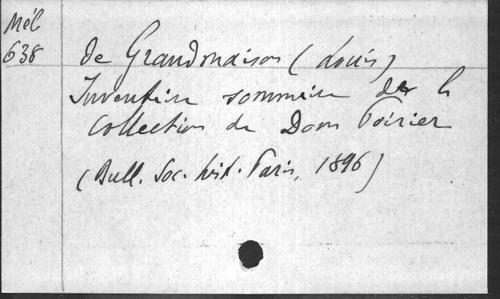 Mél
638
de Grandmaison (Louis)
Inventaire sommaire de la
Collection de Dom Poirier
(Bull. Soc. hist. Paris, 1896)